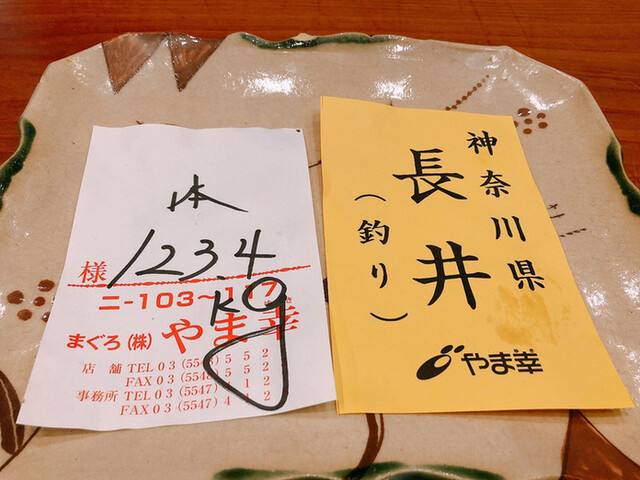 本
様
123.4
kg
ニ-103~117
まぐろ(株) やま幸
店 舗 TEL 03 (5548) 5 5 2
FAX 03 (5548) 5 5 2
事務所 TEL 03 (5547) 4 1 2
FAX 03 (5547) 4 1 2
神奈川県
長井
(釣り)
やま幸